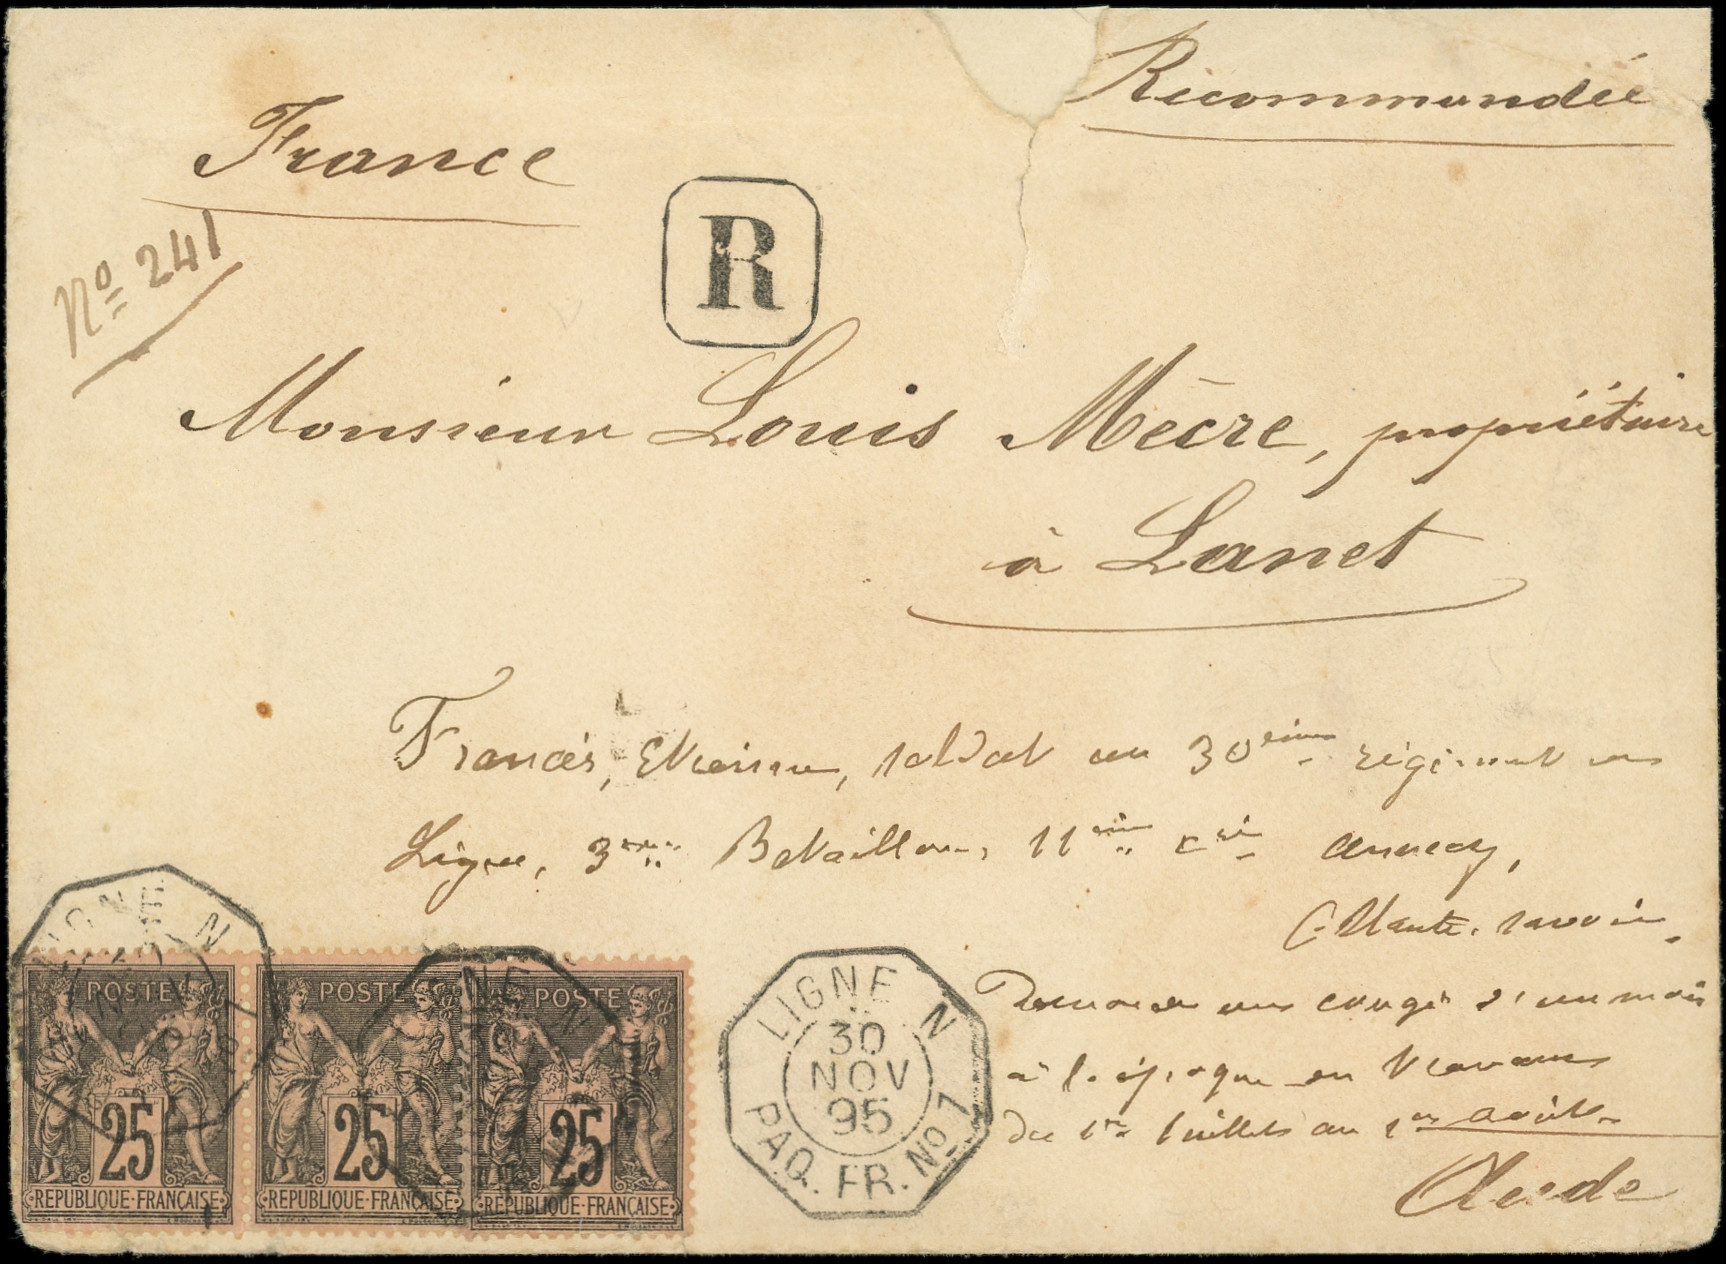 France
Recommandée
R
No 241
Monsieur Louis Mècre, propriétaire
à Lanet
Francès, Etienne, soldat au 30eime régiment de
Ligne, 3eme Bataillon, 11eime Cie Annecy,
(Haute. savoie
un congé d'un mois
à l'époque
du 1er Juillet au 1er août
Aude
LIGNE N
LIGNE N
LIGNE N
30
NOV
95
PAQ. FR. No 7
POSTE POSTE POSTE
25 25 25
REPUBLIQUE·FRANÇAISE REPUBLIQUE·FRANÇAISE REPUBLIQUE·FRANÇAISE